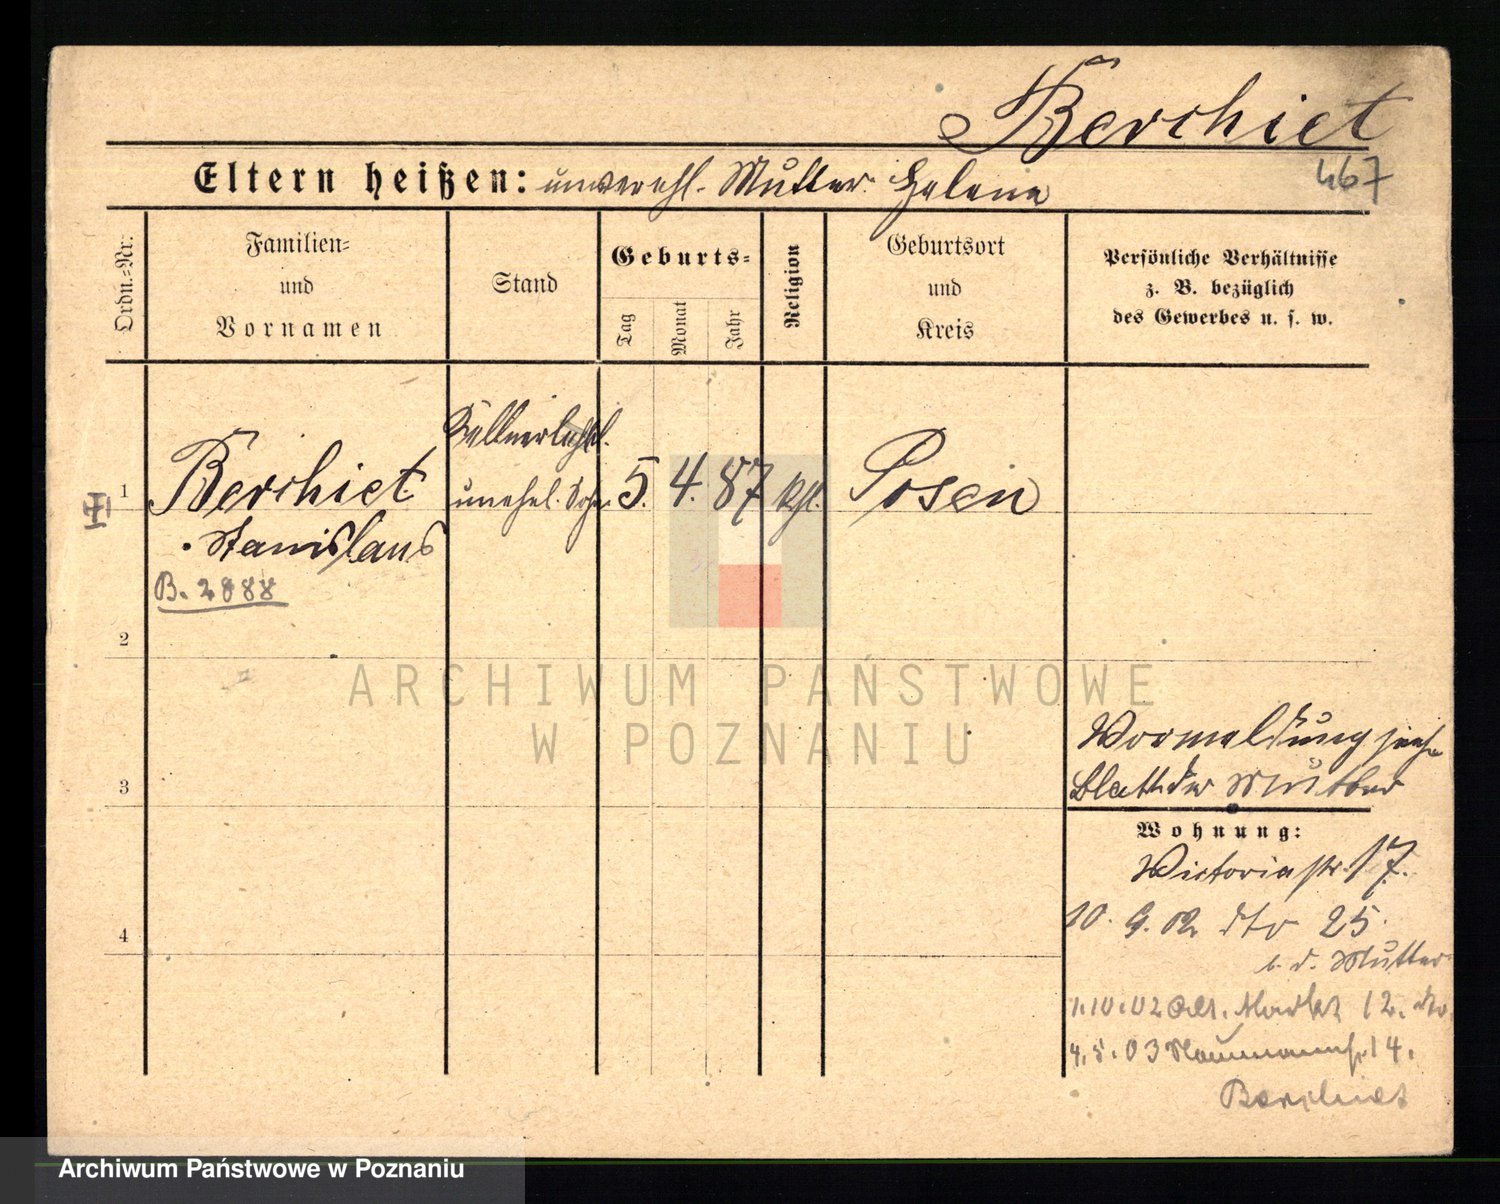 Berchiet
467
Eltern heißen: unverehl. Mutter Helene
Ordn.=Nr.
Familien=
und
Vornamen
Stand
Geburts=
Tag
Monat
Jahr
Religion
Geburtsort
und
Kreis
Persönliche Verhältnisse
z. B. bezüglich
des Gewerbes u. s. w.
Kellnerlehrl.
1
Berchiet
unehel. Sohn
5. 4. 87
kth.
Posen
Stanislaus
B. 2888
2
ARCHIWUM PAŃSTWOWE
W POZNANIU
Vormeldung siehe
Blatt der Mutter
3
Wohnung:
Victoriastr. 17.
10. 9. 02 dto 25.
b. d. Mutter
4
1.10.02 Alt. Markt 12. dto.
4.5.03 Naumannstr. 14.
Berchiet
Archiwum Państwowe w Poznaniu